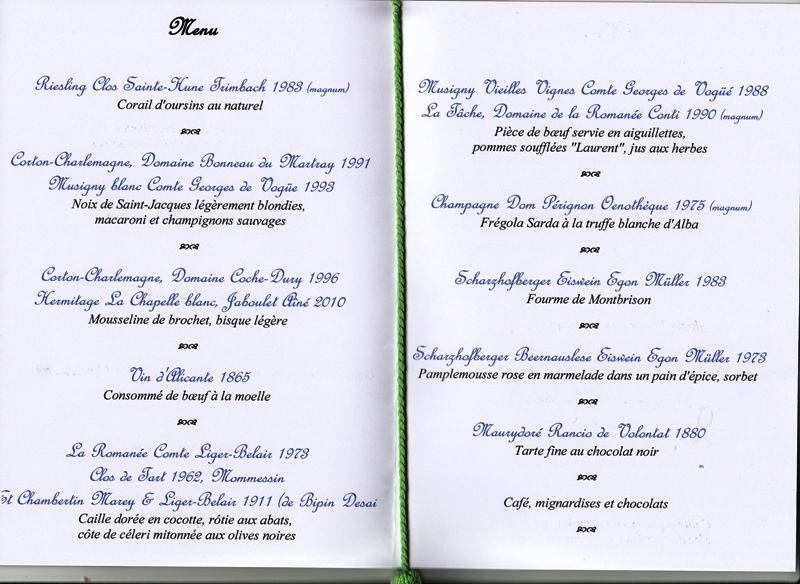 Menu
Riesling Clos Sainte-Hune Trimbach 1983 (magnum)
Corail d'oursins au naturel
Corton-Charlemagne, Domaine Bonneau du Martray 1991
Musigny blanc Comte Georges de Vogüe 1993
Noix de Saint-Jacques légèrement blondies,
macaroni et champignons sauvages
Corton-Charlemagne, Domaine Coche-Dury 1996
Hermitage La Chapelle blanc, Jaboulet Aîné 2010
Mousseline de brochet, bisque légère
Vin d'Alicante 1865
Consommé de bœuf à la moelle
La Romanée Comte Liger-Belair 1973
Clos de Tart 1962, Mommessin
St Chambertin Marey & Liger-Belair 1911 (de Bipin Desai
Caille dorée en cocotte, rôtie aux abats,
côte de céleri mitonnée aux olives noires
Musigny Vieilles Vignes Comte Georges de Vogüé 1988
La Tâche, Domaine de la Romanée Conti 1990 (magnum)
Pièce de bœuf servie en aiguillettes,
pommes soufflées "Laurent", jus aux herbes
Champagne Dom Pérignon Oenothèque 1975 (magnum)
Frégola Sarda à la truffe blanche d'Alba
Scharzhofberger Eiswein Egon Müller 1983
Fourme de Montbrison
Scharzhofberger Beernauslese Eiswein Egon Müller 1973
Pamplemousse rose en marmelade dans un pain d'épice, sorbet
Maurydoré Rancio de Volontat 1880
Tarte fine au chocolat noir
Café, mignardises et chocolats